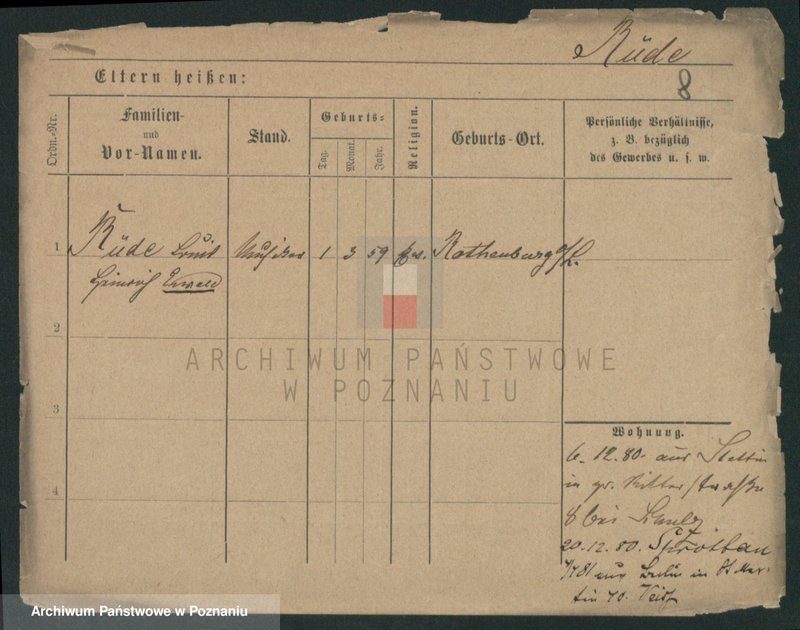 Rüde
8
Eltern heißen:
Ordn.-Nr.
Familien-
und
Vor-Namen.
Stand.
Geburts-
Tag.
Monat.
Jahr.
Religion.
Geburts-Ort.
Persönliche Verhältnisse,
z. B. bezüglich
des Gewerbes u. s. w.
1 Rüde Ernst Musiker 1 3 59 Ev. Rothenburg o/L.
Heinrich Ewald
2
3
4
ARCHIWUM PAŃSTWOWE
W POZNANIU
Wohnung.
6. 12. 80. aus Stettin
in gr. Ritterstraße
8 bei
20. 12. 80. Sprottau
aus Berlin in St. Mar-
tin 70.
Archiwum Państwowe w Poznaniu